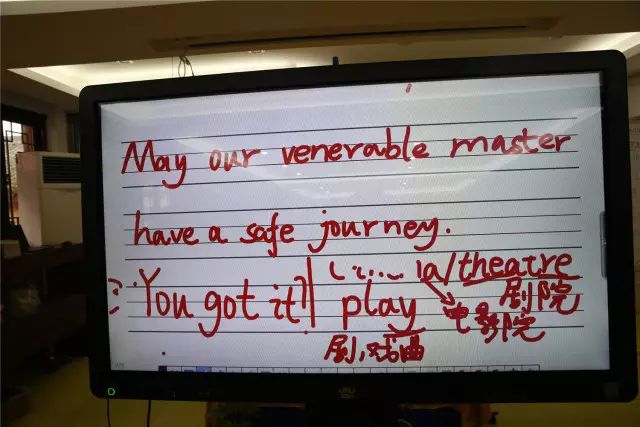 May our venerable master
have a safe journey.
You got it? play /theatre
剧院
电影院
剧,戏曲